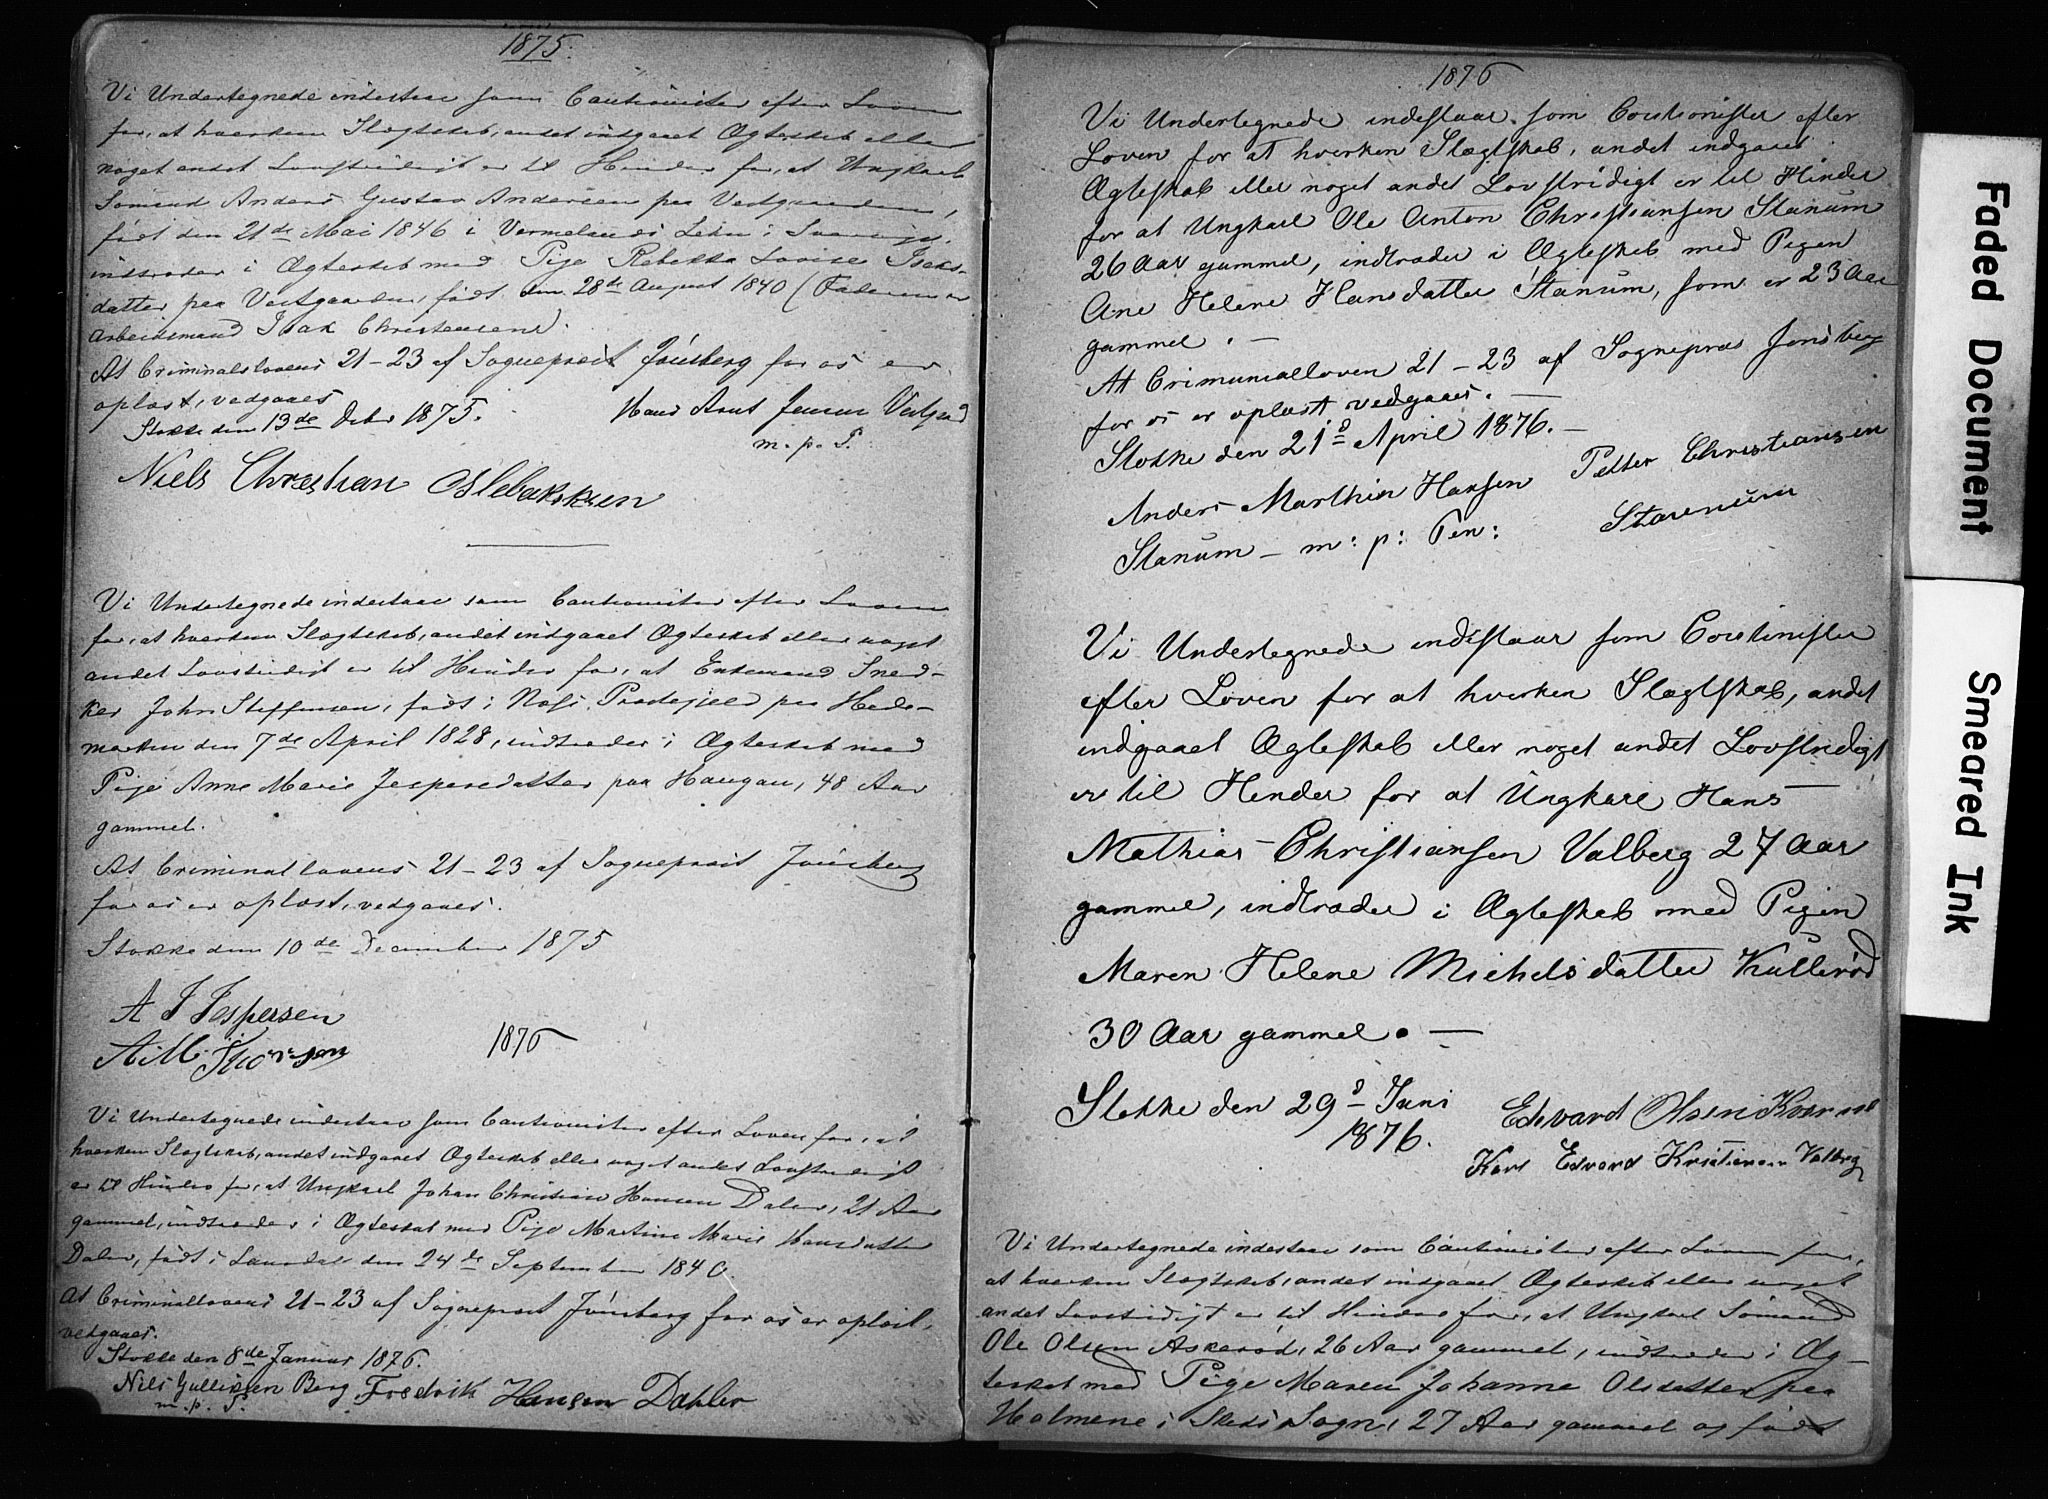 1875.
Vi Undertegnede indestaae som Cautionister efter Loven
for, at hverken Slægtskab, andet indgaaet Ægteskab eller
noget andet Lovstridigt er til Hinder for, at Ungkarl
Sømand Anders Gustav Andersen paa Vestgaarden,
født den 21de Mai 1846 i Vermelands Lehn i Sverige,
indtræder i Ægteskab med Pige Rebekka Lovise Isaks-
datter paa Vestgaarden, født den 28de August 1840 (Faderen er
Arbeidsmand Isak Christensen).
At Criminallovens 21-23 af Sogneprest Jönsberg for os er
oplæst, vedgaaes
Stokke den 13de Octbr 1875.
Hans Arnt Jensen Vestgård
m. p. P.
Niels Christian Oslebakken
Vi Undertegnede indestaae som Cautionister efter Loven
for, at hverken Slægtskab, andet indgaaet Ægteskab eller noget
andet Lovstridigt er til Hinder for, at Enkemand Sned-
ker John Steffensen, født i Næs Prestegjeld paa Hede-
marken den 7de April 1828, indtræder i Ægteskab med
Pige Anne Marie Jespersdatter paa Haugan, 48 Aar
gammel.
At Criminallovens 21-23 af Sogneprest Jönsberg
for os er oplæst, vedgaaes.
Stokke den 10de December 1875
A J Jespersen
A. M. Thorsen
1876
Vi Undertegnede indestaae som Cautionister efter Loven for, at
hverken Slægtskab, andet indgaaet Ægteskab eller noget andet Lovstridigt
er til Hinder for, at Ungkarl Johan Christian Hansen Dalen, 21 Aar
gammel, indtræder i Ægteskab med Pige Martine Marie Hansdatter
Dalen, født i Laurdal den 24de September 1840
At Criminallovens 21-23 af Sogneprest Jönsberg for os er oplæst,
vedgaaes.
Stokke den 8de Januar 1876.
Nils Gulliksen Berg Fredrik Hansen Dahler
m. p. P.
1876
Vi Undertegnede indestaar som Coutionister efter
Loven for at hverken Slægtskab, andet indgaaet
Ægteskab eller noget andet Lovstridigt er til Hinder
for at Ungkarl Ole Anton Christiansen Stanum
26 Aar gammel, indtræder i Ægteskab med Pigen
Ane Helene Hansdatter Stanum, som er 23 Aar
gammel. —
At Crimunalloven 21 - 23 af Sognepres Jonsberg
for os er oplæst vedgaaes. —
Stokke den 21d April 1876. —
Anders Marthin Hansen Petter Christiansen
Stanum — m: p: Pen: Starenum
Vi Undertegnede indestaar som Coutinister
efter Loven for at hverken Slægtskab, andet
indgaaet Ægteskab eller noget andet Lovstridigt
er til Hinder for at Ungkarl Hans
Mathias Christiansen Valberg 27 Aar
gammel, indtræder i Ægteskab med Pigen
Maren Helene Michelsdatter Kullerød
30 Aar gammel. —
Stokke den 29d Juni
1876.
Edvard Olsen
Karl Edvard Kristiansen Valberg
Vi Undertegnede indestaae som Cautionister efter Loven for,
at hverken Slægtskab, andet indgaaet Ægteskab eller noget
andet Lovstridigt er til Hinder for, at Ungkarl Sømand
Ole Olsen Askerød, 26 Aar gammel, indtræder i Æg-
teskab med Pige Maren Johanne Olsdatter paa
Holmene i Slets Sogn, 27 Aar gammel og født
Faded Document
Smeared Ink